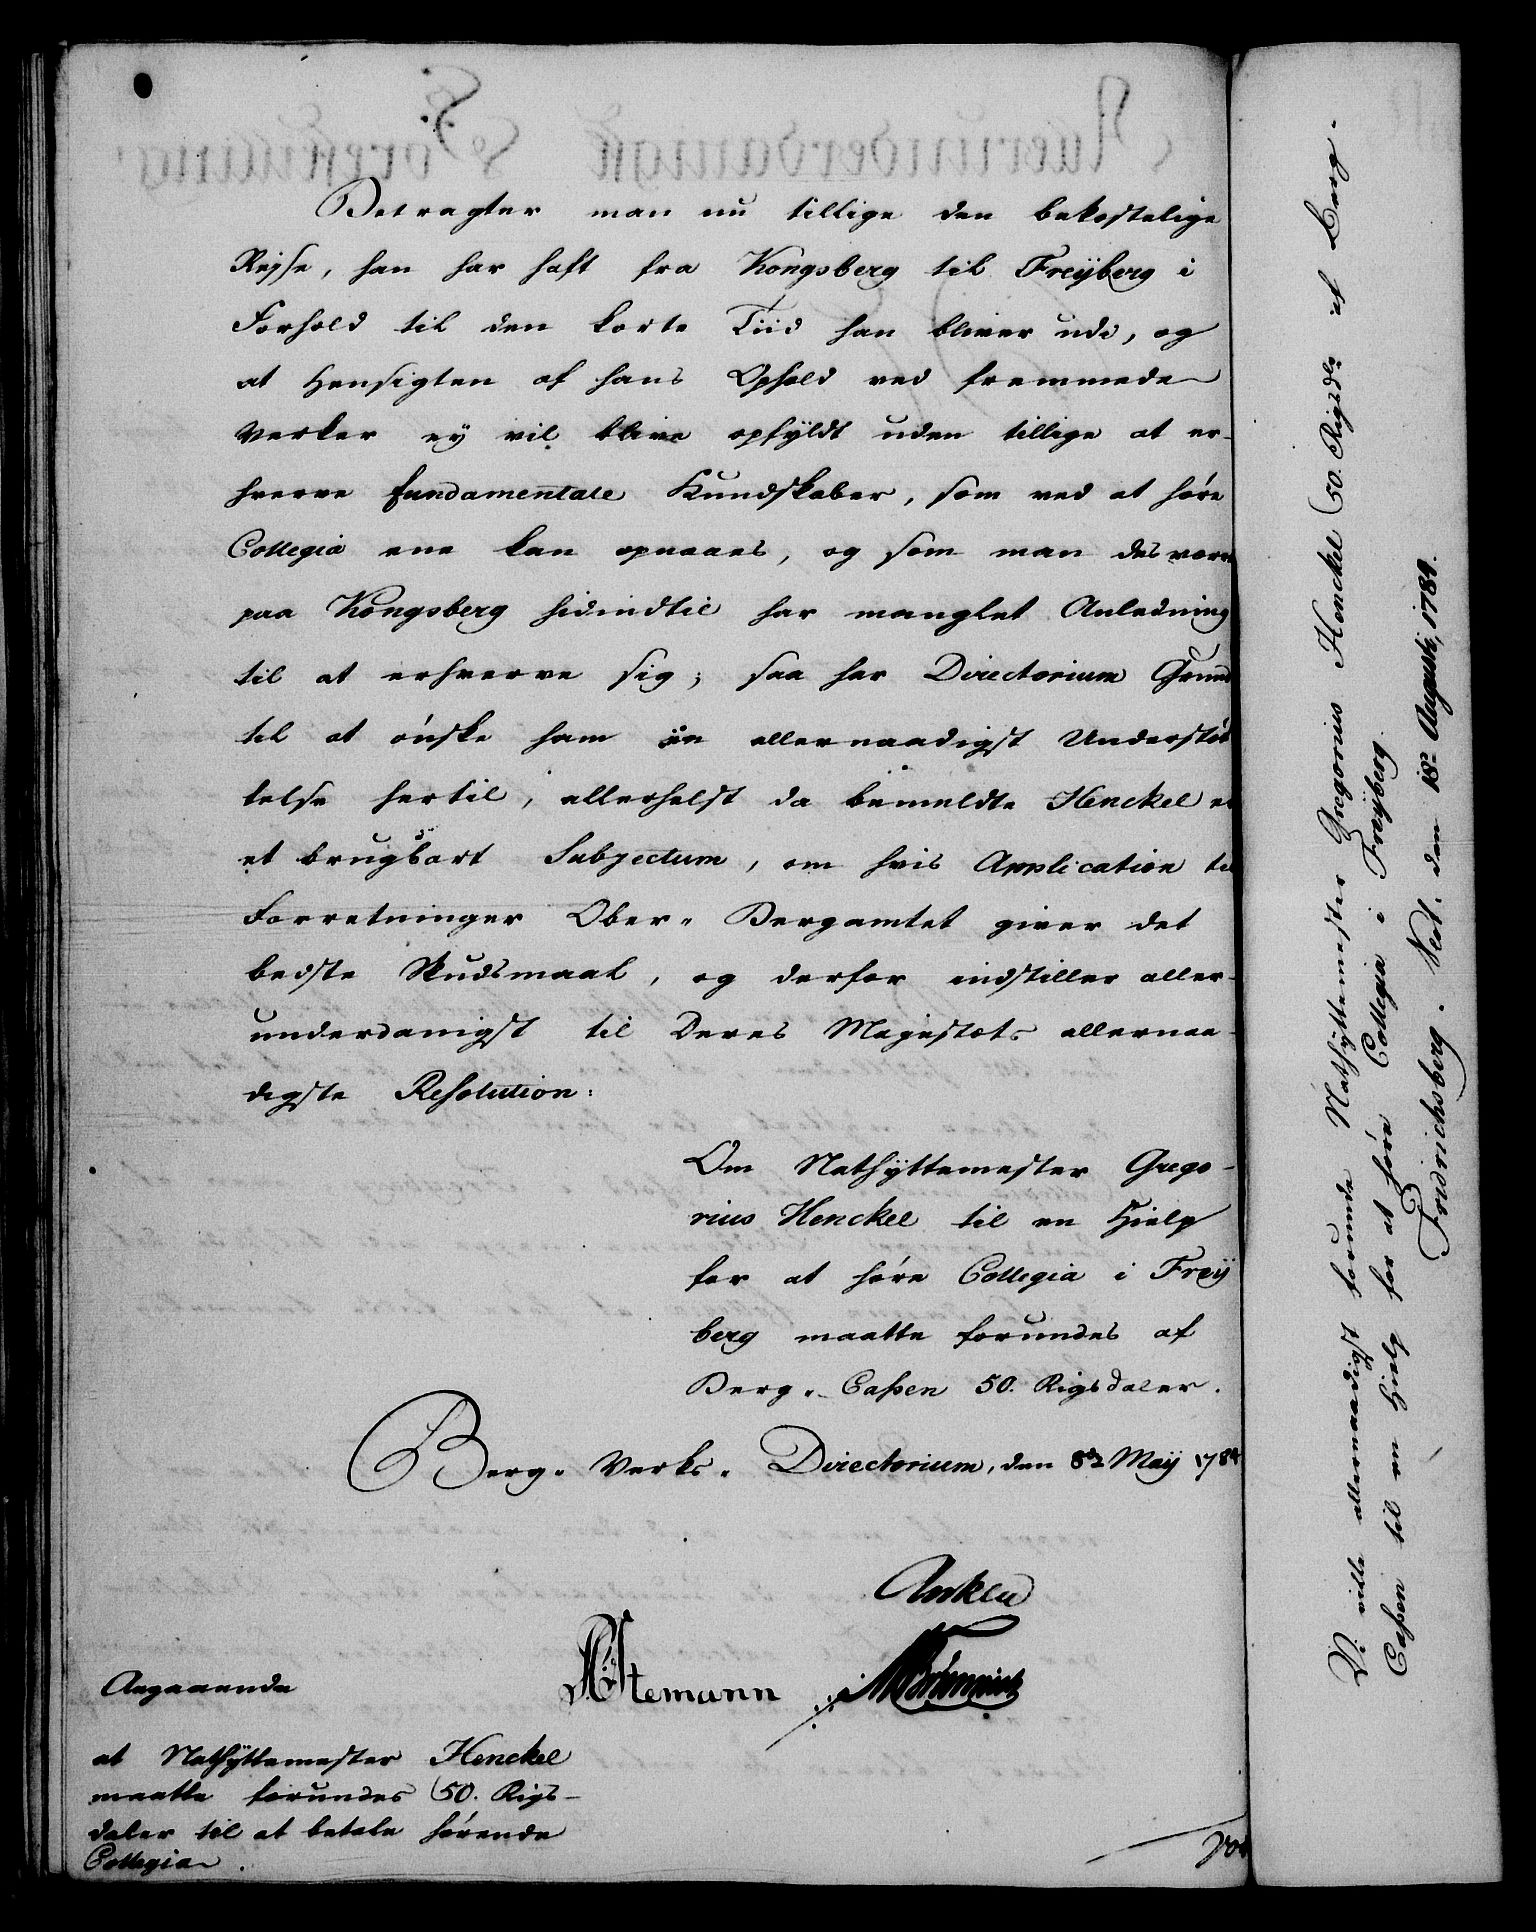 Betragter man nu tillige den bekostelige
Rejse, han har haft fra Kongsberg til Freÿberg i
Forhold til den korte Tiid han bliver ude, og
at Hensigten af hans Ophold ved fremmede
Verker eÿ vil blive opfÿldt uden tillige at er-
hverve fundamentale Kundskaber, som ved at høre
Collegia ene kan opnaaes, og som man desværre
paa Kongsberg hidindtil har manglet Anledning
til at erhverve sig; saa har Directorium Grund
til at ønske ham en allernaadigst Understøt
telse hertil, allerhelst da bemeldte Henckel er
et brugbart Subjectum, om hvis Application til
Forretninger Ober-Bergamtet giver det
bedste Skudsmaal, og derfor indstiller aller-
underdanigst til Deres Majestæts allernaa-
digste Resolution:
Om Nathÿttemester Grego-
rius Henckel til en Hielp
for at høre Collegia i Freÿ
berg maatte forundes af
Berg-Cassen 50. Rigsdaler.
Berg-Verks-Directorium, den 8de Maÿ 1784
Ancker
Stemann MBrünnich
Angaaende
at Nathÿttemester Henckel
maatte forundes 50. Rigs-
daler til at betale hørende
Collegia.
Vi ville allernaadigst forunde Nathÿttemester Gregorius Henckel 50. Rigsdr af Berg-
Cassen til en Hielp for at høre Collegia i Freÿberg.
Fridrichsberg. Slot. den 18de Augusti, 1784.